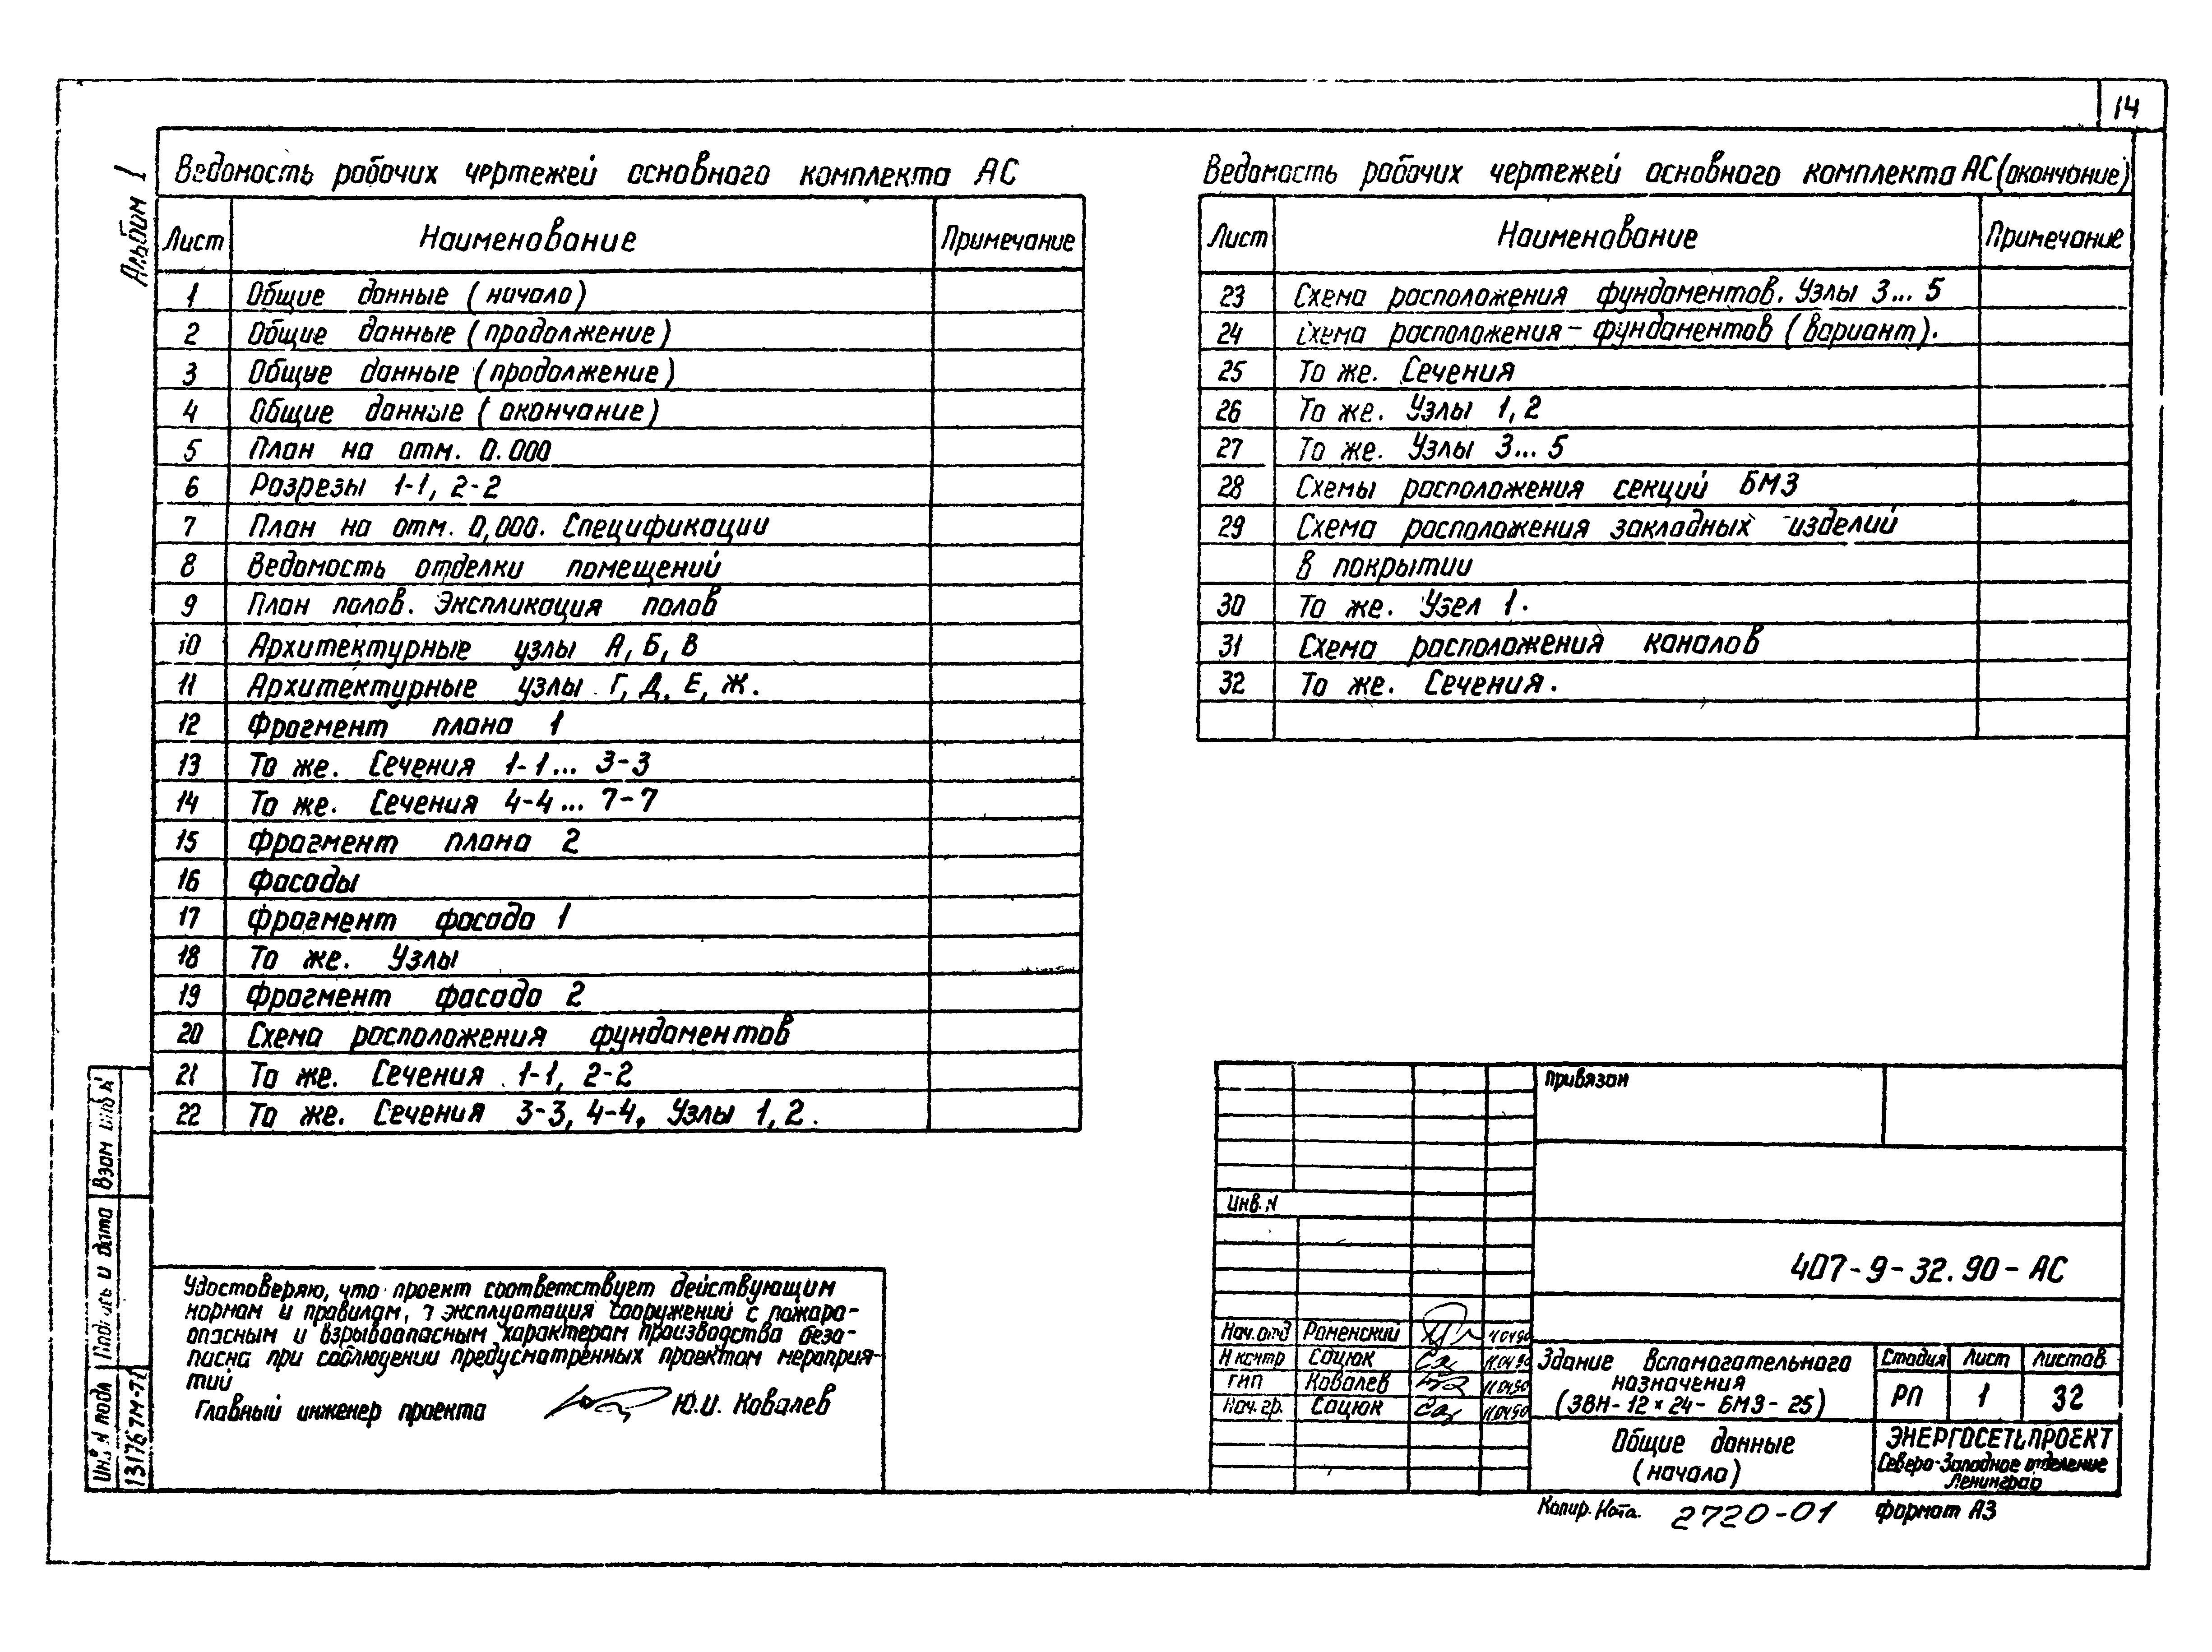 14
Альбом 1
Ведомость рабочих чертежей основного комплекта АС
Лист Наименование Примечание
1 Общие данные (начало)
2 Общие данные (продолжение)
3 Общие данные (продолжение)
4 Общие данные (окончание)
5 План на отм. 0.000
6 Разрезы 1-1, 2-2
7 План на отм. 0,000. Спецификации
8 Ведомость отделки помещений
9 План полов. Экспликация полов
10 Архитектурные узлы А, Б, В
11 Архитектурные узлы Г, Д, Е, Ж.
12 Фрагмент плана 1
13 То же. Сечения 1-1... 3-3
14 То же. Сечения 4-4... 7-7
15 Фрагмент плана 2
16 Фасады
17 Фрагмент фасада 1
18 То же. Узлы
19 Фрагмент фасада 2
20 Схема расположения фундаментов
21 То же. Сечения 1-1, 2-2
22 То же. Сечения 3-3, 4-4, Узлы 1, 2.
Ведомость рабочих чертежей основного комплекта АС (окончание)
Лист Наименование Примечание
23 Схема расположения фундаментов. Узлы 3... 5
24 Схема расположения фундаментов (вариант).
25 То же. Сечения
26 То же. Узлы 1, 2
27 То же. Узлы 3... 5
28 Схемы расположения секций БМЗ
29 Схема расположения закладных изделий
в покрытии
30 То же. Узел 1.
31 Схема расположения каналов
32 То же. Сечения.
Удостоверяю, что проект соответствует действующим
нормам и правилам, а эксплуатация сооружений с пожаро-
опасным и взрывоопасным характером производства безо-
пасна при соблюдении предусмотренных проектом мероприя-
тий
Главный инженер проекта Ю.И. Ковалев
Взам инв N
Подпись и дата
Инв N подл
13176тм-т1
Привязан
Инв. N
407-9-32.90-АС
Нач. отд Роменский 11.04.90
Н контр Сацюк 11.04.90
ГИП Ковалев 11.04.90
Нач. гр. Сацюк 11.04.90
Здание вспомогательного
назначения
(ЗВН-12×24-БМЗ-25)
Стадия Лист Листов
РП 1 32
Общие данные
(начало)
ЭНЕРГОСЕТЬПРОЕКТ
Северо-Западное отделение
Ленинград
Копир. 2720-01 Формат А3